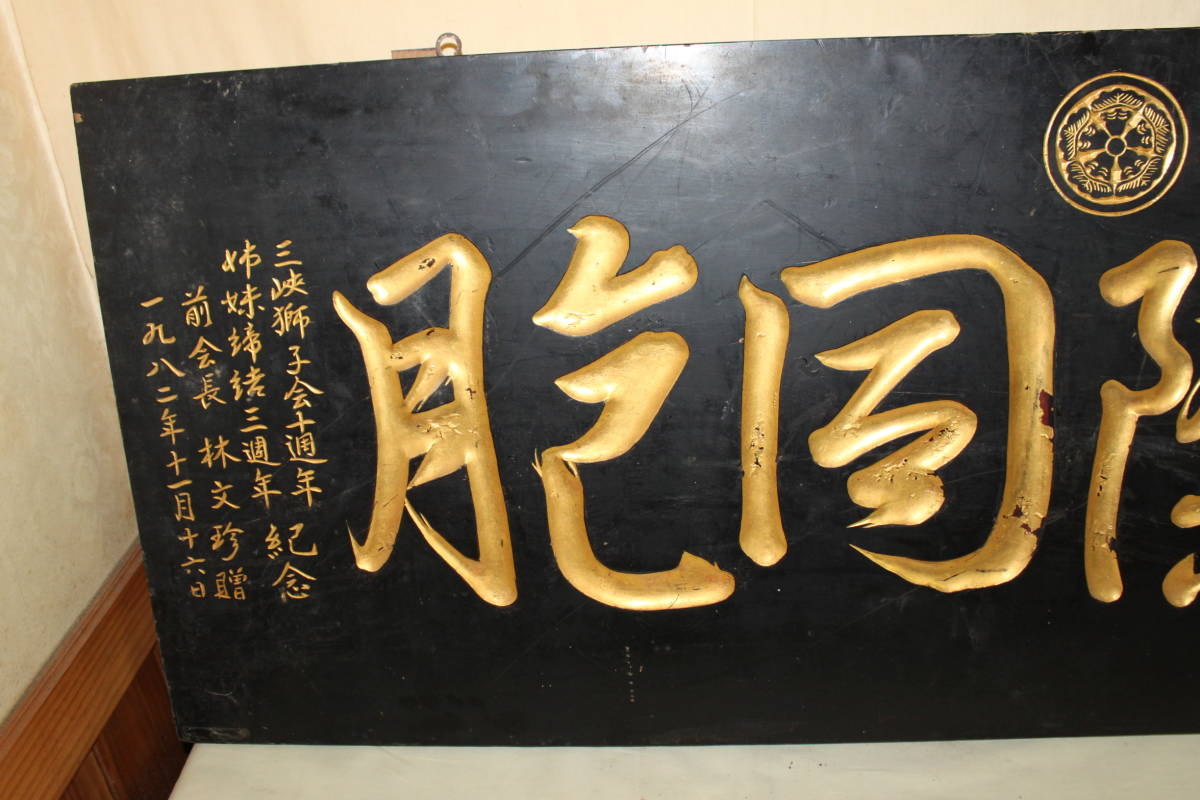 同胞
三峽獅子会十週年
姊妹締結三週年
紀念
前会長 林文珍贈
一九八二年十一月十六日